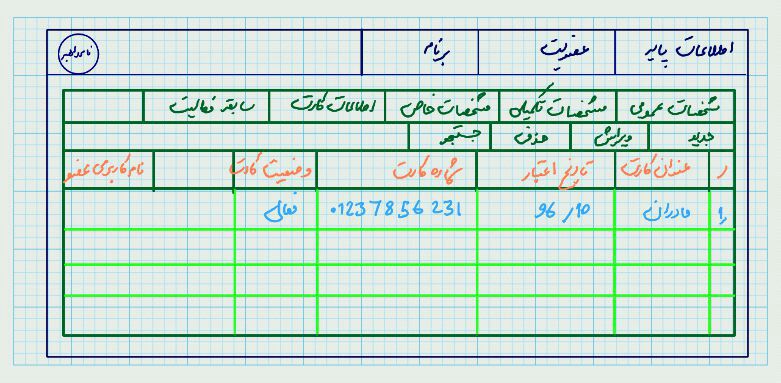 اطلاعات پایه عضویت برنامه نام کاربر
مشخصات عمومی مشخصات تکمیلی مشخصات خاص اطلاعات کارت سابقه فعالیت
جدید ویرایش حذف جستجو
ر عنوان کارت تاریخ اعتبار شماره کارت وضعیت کارت نام کاربری عضو
۱ مادران 96/10 01237856231 فعال